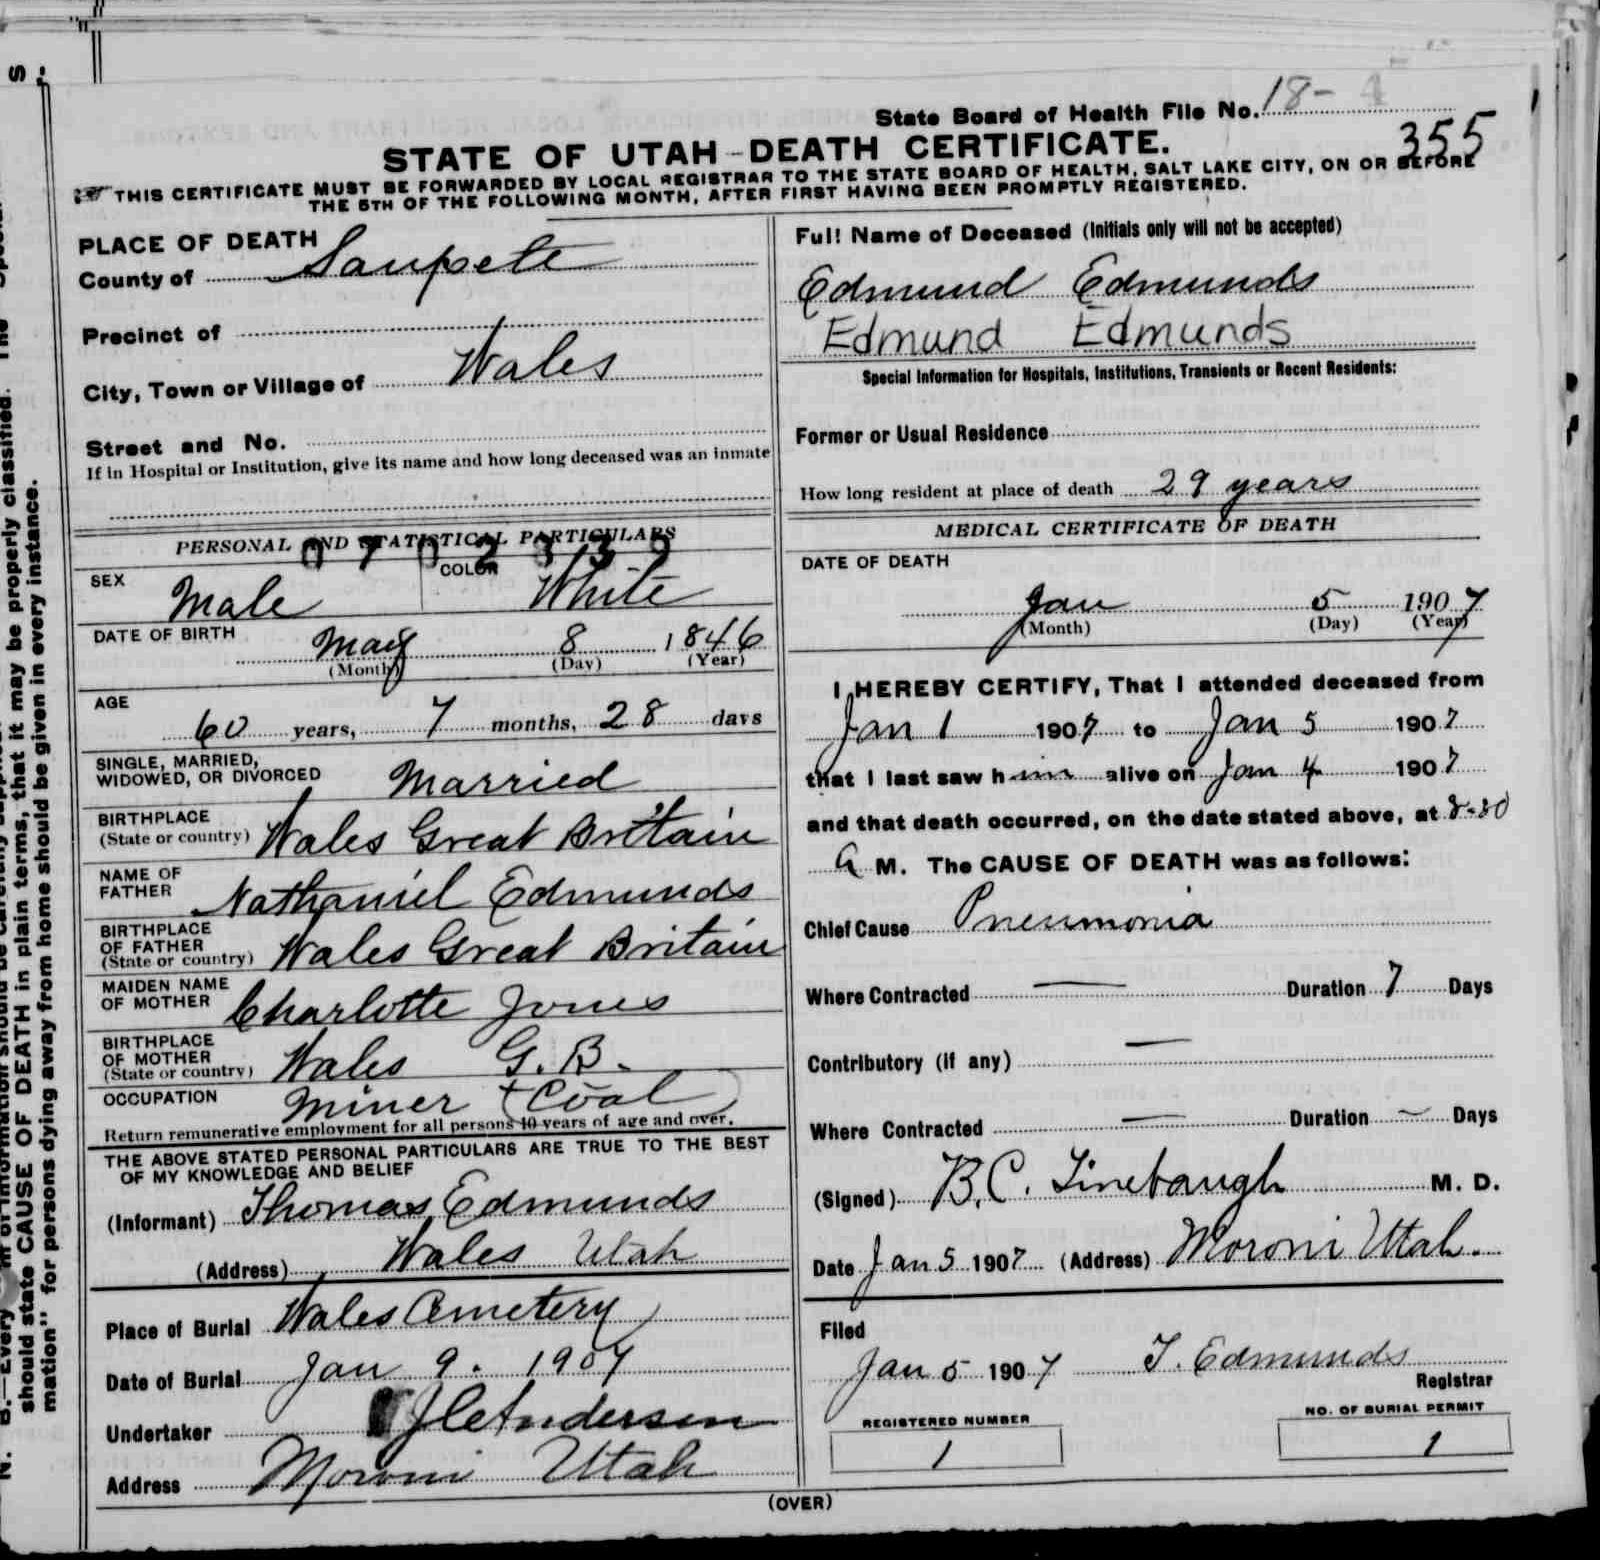 State Board of Health File No. 18- 4
355
STATE OF UTAH-DEATH CERTIFICATE.
THIS CERTIFICATE MUST BE FORWARDED BY LOCAL REGISTRAR TO THE STATE BOARD OF HEALTH, SALT LAKE CITY, ON OR BEFORE
THE 5TH OF THE FOLLOWING MONTH, AFTER FIRST HAVING BEEN PROMPTLY REGISTERED.
PLACE OF DEATH
County of Sanpete
Precinct of
City, Town or Village of Wales
Street and No.
If in Hospital or Institution, give its name and how long deceased was an inmate
PERSONAL AND STATISTICAL PARTICULARS
SEX Male COLOR White
DATE OF BIRTH May 8 1846
(Month) (Day) (Year)
AGE
60 years, 7 months, 28 days
SINGLE, MARRIED,
WIDOWED, OR DIVORCED Married
BIRTHPLACE
(State or country) Wales Great Britain
NAME OF
FATHER Nathaniel Edmunds
BIRTHPLACE
OF FATHER
(State or country) Wales Great Britain
MAIDEN NAME
OF MOTHER Charlotte Jones
BIRTHPLACE
OF MOTHER
(State or country) Wales G. B.
OCCUPATION Miner (Coal)
Return remunerative employment for all persons 10 years of age and over.
THE ABOVE STATED PERSONAL PARTICULARS ARE TRUE TO THE BEST
OF MY KNOWLEDGE AND BELIEF
(Informant) Thomas Edmunds
(Address) Wales Utah
Place of Burial Wales Cemetery
Date of Burial Jan 9. 1907
Undertaker J C Andersen
Address Moroni Utah
Full Name of Deceased (Initials only will not be accepted)
Edmund Edmunds
Edmund Edmunds
Special Information for Hospitals, Institutions, Transients or Recent Residents:
Former or Usual Residence
How long resident at place of death 29 years
MEDICAL CERTIFICATE OF DEATH
DATE OF DEATH
Jan 5 1907
(Month) (Day) (Year)
I HEREBY CERTIFY, That I attended deceased from
Jan 1 1907 to Jan 5 1907
that I last saw him alive on Jan 4 1907
and that death occurred, on the date stated above, at
A M. The CAUSE OF DEATH was as follows:
Chief Cause Pneumonia
Where Contracted — Duration 7 Days
Contributory (if any) —
Where Contracted — Duration — Days
(Signed) B. C. Linebaugh M. D.
Date Jan 5 1907 (Address) Moroni Utah.
Filed
Jan 5 1907 T. Edmunds
Registrar
REGISTERED NUMBER
1
NO. OF BURIAL PERMIT
1
(OVER)
should state CAUSE OF DEATH in plain terms, that it may be properly classified. The
mation" for persons dying away from home should be given in every instance.